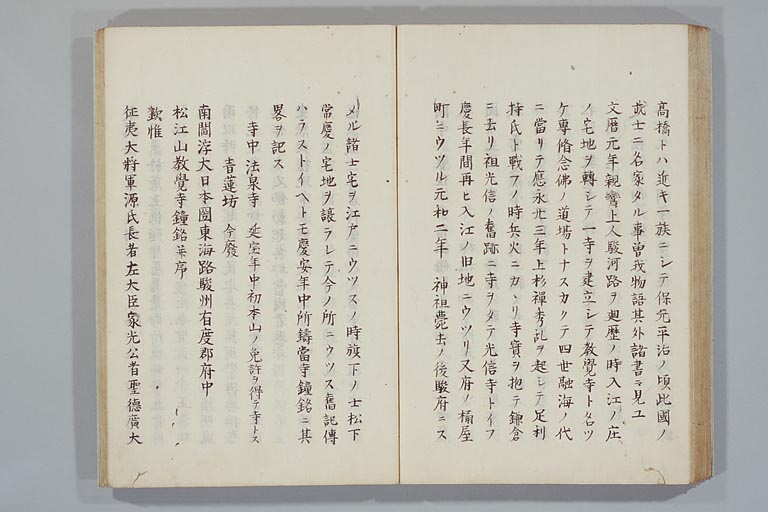 高橋トハ近キ一族ニシテ保元平治ノ頃此國ノ
武士ニ名家タル事曽我物語其外諸書ラ見ユ
文暦元年親鸞上人駿河路ヲ廻歴ノ時入江ノ庄
ノ宅地ヲ轉シテ一寺ヲ建立シテ教覺寺ト名ツ
ケ專脩念佛ノ道場トナスカクテ四世融海ノ代
ニ當リテ應永廿三年上杉禪秀乱ヲ起シテ足利
持氏ト戰フノ時兵火ニカヽリ寺寳ヲ抱テ鎌倉
ニ去リ祖光信ノ舊跡ニ寺ヲタテ光信寺トイフ
慶長年間再ヒ入江ノ旧地ニウツリ又府ノ桶屋
町ニウツル元和二年 神祖薨去ノ後駿府ニス
メル諸士宅ヲ江戸ニウツスノ時旗下ノ士松下
常慶ノ宅地ヲ讓ラレテ今ノ所ニウツス舊記傳
ハラストイヘトモ慶安年中所鑄當寺鐘銘ニ其
畧ヲ記ス
寺中法泉寺 延宝年中初本山ノ免許ヲ得テ寺トス
音蓮坊 今廢
南閻浮大日本國東海路駿州有度郡府中
松江山教覺寺鐘銘并序
歎惟
征夷大将軍源氏長者左大臣家光公者聖德廣大